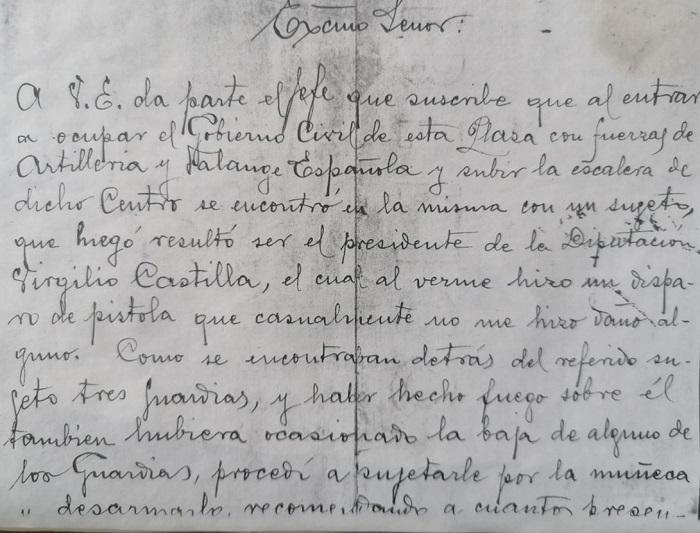 Excmo Señor:
A V.E. da parte el Jefe que suscribe que al entrar
a ocupar el Gobierno Civil de esta Plaza con fuerzas de
Artilleria y Falange Española y subir la escalera de
dicho Centro se encontró en la misma con un sugeto,
que luegó resultó ser el presidente de la Diputacion
Virgilio Castilla, el cual al verme hizo un dispa-
ro de pistola que casualmente no me hizo daño al-
guno. Como se encontraban detrás del referido su-
geto tres guardias, y haber hecho fuego sobre él
tambien hubiera ocasionado la baja de alguno de
los Guardias, procedí a sujetarle por la muñeca
desarmarlo, recomendando a cuantos